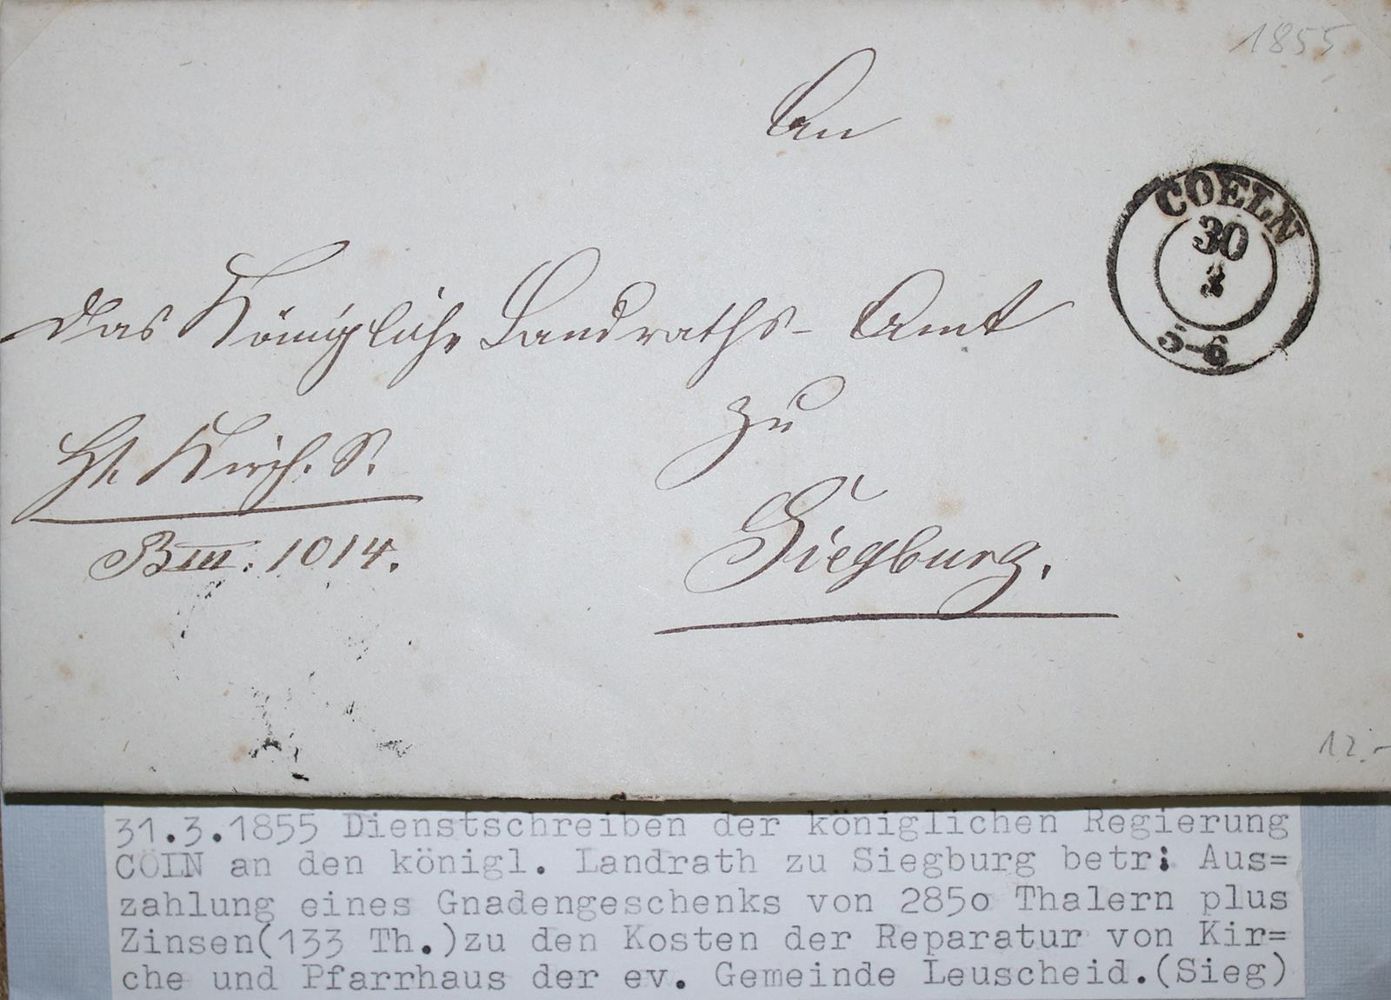 1855
An
COELN
30
3
5-6
das Königliche Landraths-Amt
zu
Siegburg.
Hl. Kirch. S.
BIII. 1014.
12.-
31.3.1855 Dienstschreiben der königlichen Regierung
CÖIN an den königl. Landrath zu Siegburg betr: Aus=
zahlung eines Gnadengeschenks von 285o Thalern plus
Zinsen(133 Th.)zu den Kosten der Reparatur von Kir=
che und Pfarrhaus der ev. Gemeinde Leuscheid.(Sieg)